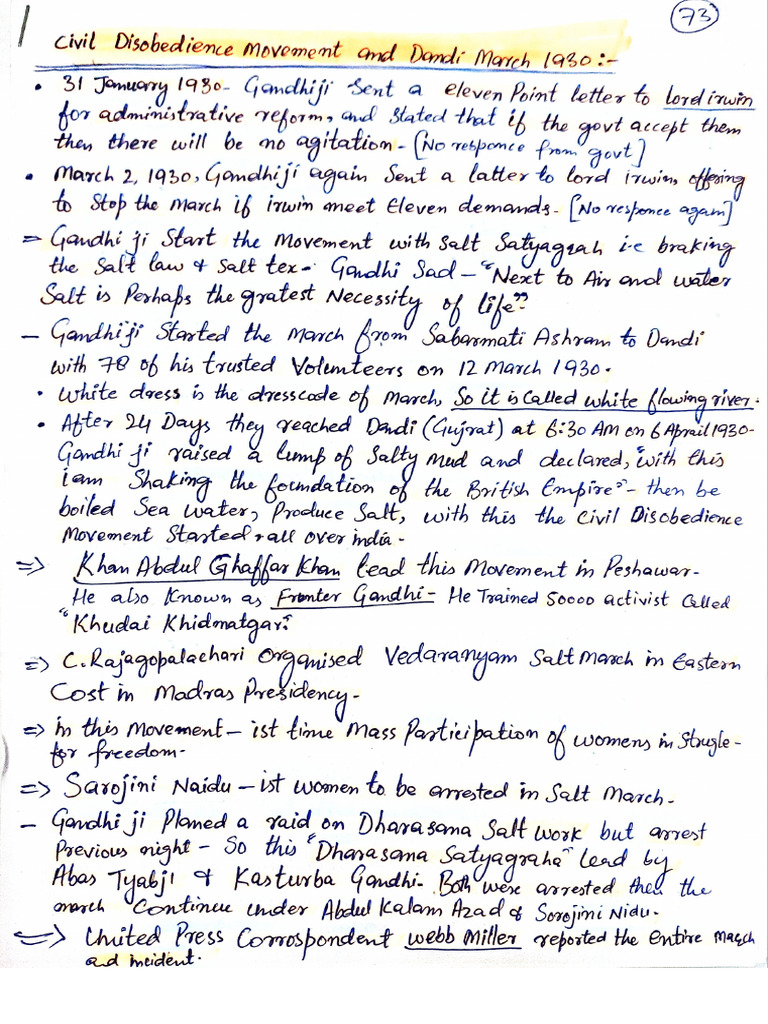 73
Civil Disobedience Movement and Dandi March 1930:-
• 31 January 1930- Gandhiji Sent a eleven Point letter to lord irwin
for administrative reform, and stated that if the govt accept them
then there will be no agitation- [No responce from govt]
• March 2, 1930, Gandhiji again Sent a latter to lord irwin, offering
to Stop the March if irwin meet Eleven demands- [No responce again]
= Gandhi ji Start the Movement with Salt Satyagrah i.e braking
the Salt law & Salt tex- Gandhi Sad - "Next to Air and water
Salt is Perhaps the gratest Necessity of life"
- Gandhiji Started the March from Sabarmati Ashram to Dandi
with 78 of his trusted Volunteers on 12 March 1930.
• White dress is the dresscode of March, So it is called white flowing river.
• After 24 Days they reached Dandi (Gujrat) at 6:30 AM on 6 Aprail 1930-
Gandhi ji raised a lump of Salty mud and declared, "with this
i am Shaking the foundation of the British Empire"- then be
boiled Sea water, Produce Salt, with this the Civil Disobedience
Movement Started all over india-
=> Khan Abdul Ghaffar Khan lead this Movement in Peshawar-
He also Known as Fronter Gandhi- He Trained 50000 activist Called
"Khudai Khidmatgar"
=> C. Rajagopalachari Organised Vedaranyam Salt March in Eastern
Cost in Madras Presidency-
=> in this Movement - ist time Mass Participation of womens in Strugle-
for freedom-
=> Sarojini Naidu - ist women to be arrested in Salt March-
- Gandhi ji Planed a raid on Dharasana Salt work but arrest
Previous night- So this "Dharasana Satyagraha" lead by
Abas Tyabji & Kasturba Gandhi- Both were arrested then the
march Continue under Abdul Kalam Azad & Sorojini Nidu-
=> United Press Corrospondent webb Miller reported the entire March
and incident.